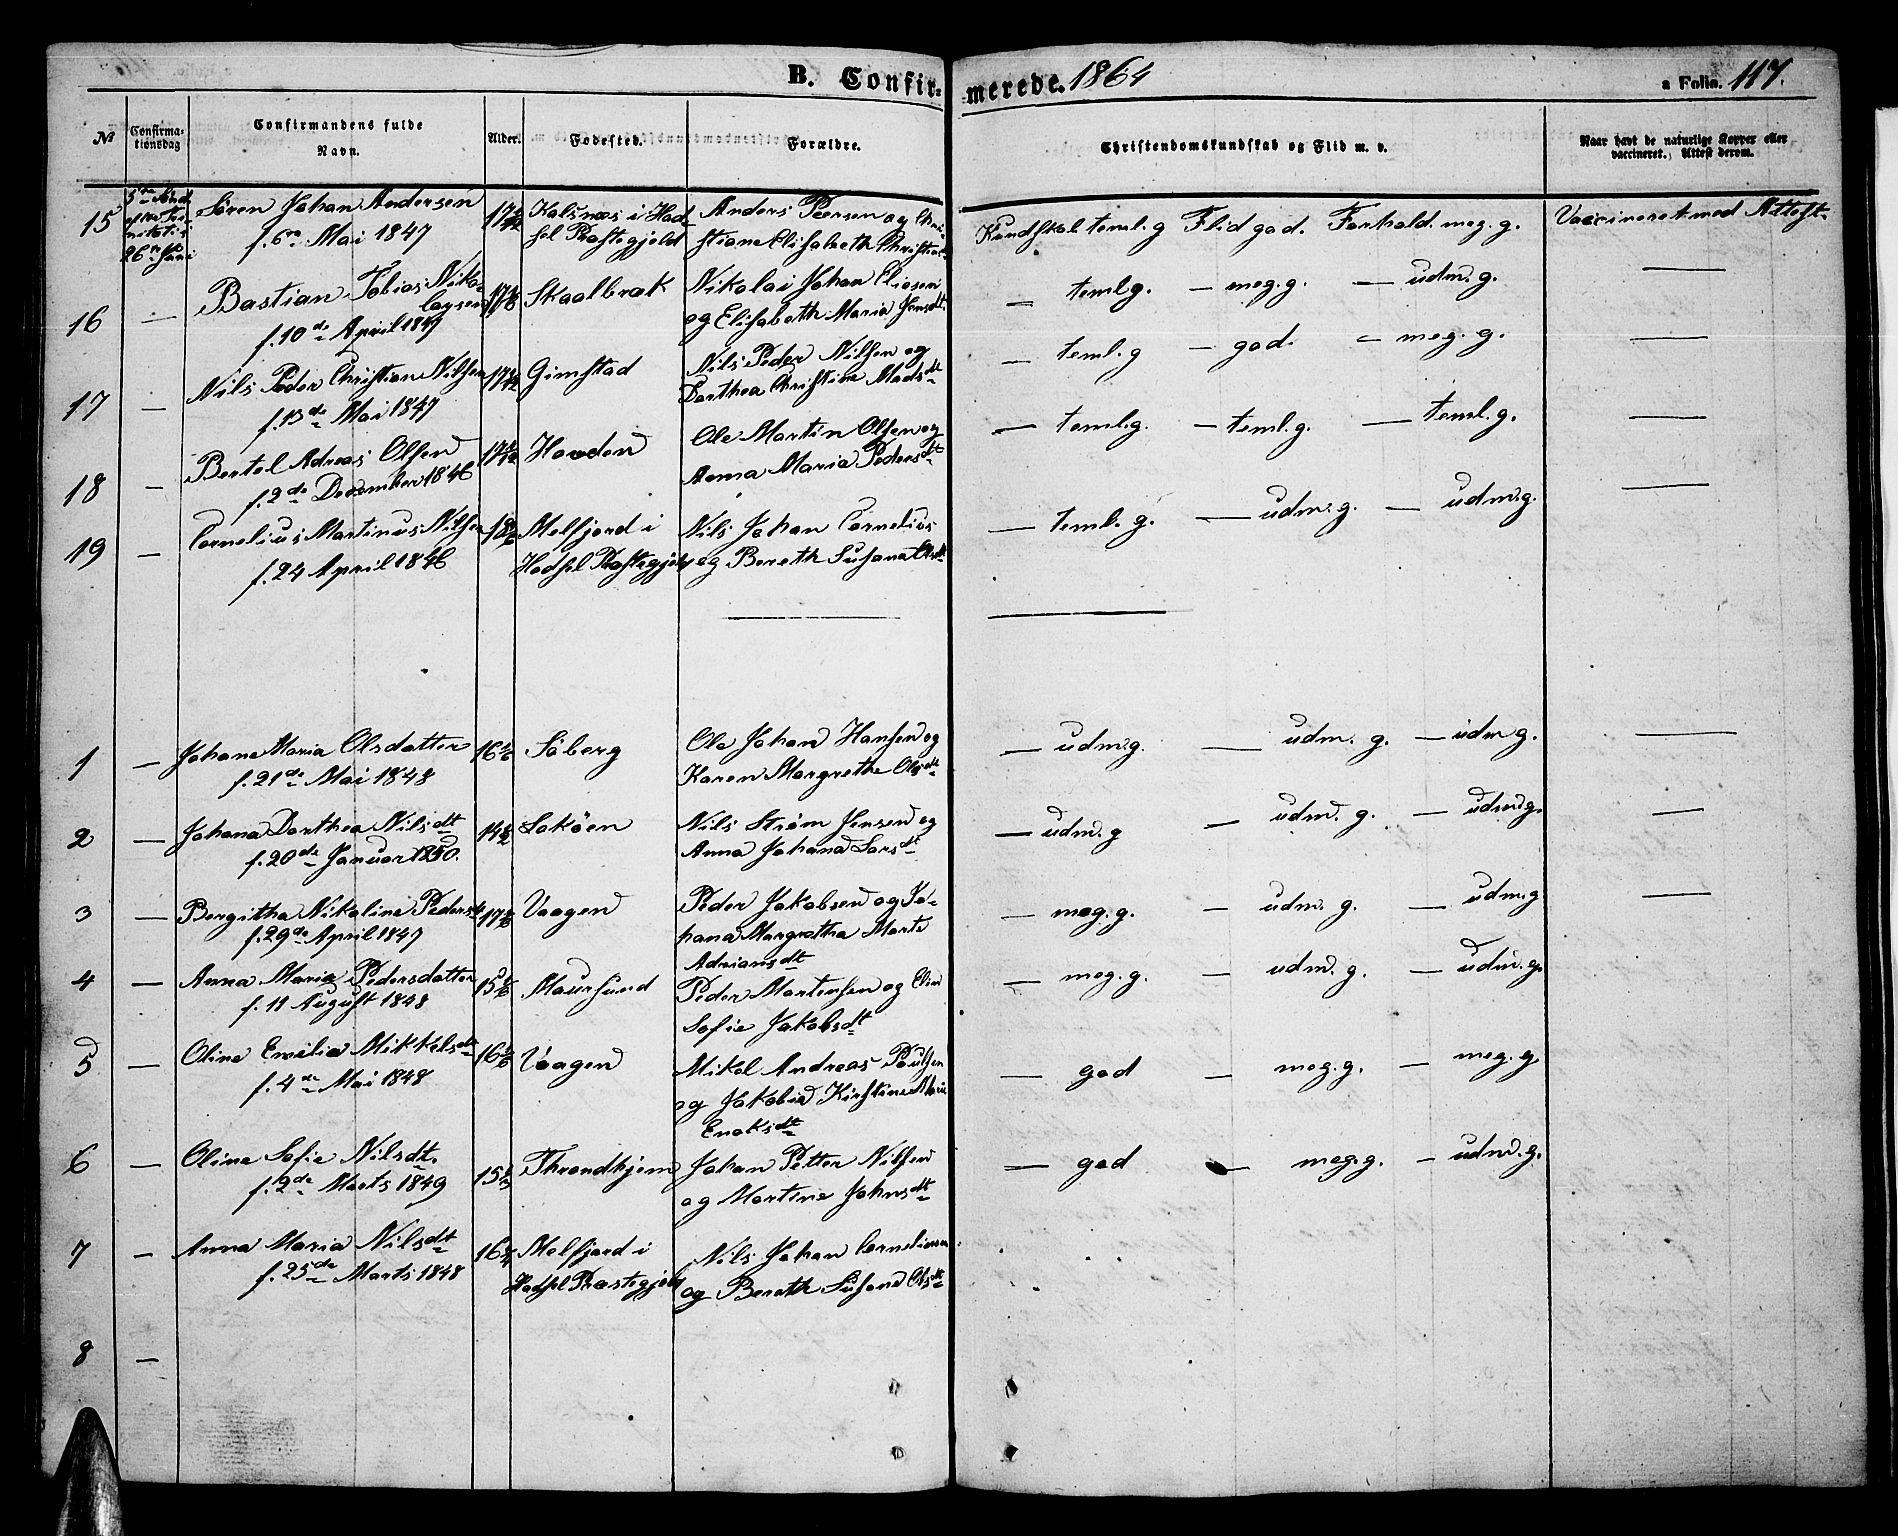 B. Confir-
merede. 1864
a Folio. 117.
№
Confirma-
tionsdag
Confirmandens fulde
Navn.
Alder.
Fødested.
Forældre.
Christendomskundskab og Flid m. v.
Naar havt de naturlige Kopper eller
vaccineret. Attest derom.
15
5te Sønd.
efter Tri-
nitatis
26de Juni
Søren Johan Andersen
f. 6te Mai 1847
17
Kalsnæs i Had-
sel Præstegjeld
Anders Peersen og Chri-
stiane Elisabeth
Kundskab teml. g Flid god. Forhold. meg. g.
Vaccineret med Attest
16 —
Bastian Tobias Niko-
laysen
f. 10de April 1847
17
Skaalbrek
Nikolai Johan Eliasen
og Elisabeth Maria Jensdt
— temlg. — meg. g. — udm. g. —
17 —
Nils Peder Christian Nilsen
f. 13de Mai 1847
17
Gimstad
Nils Peder Nilsen og
Dorthea Christine Madsdt
— teml. g — god. — meg. g. —
18 —
Bertel Adreas Olsen
f. 2de December 1846
17
Hovden
Ole Martin Olsen og
Anna Maria Pedersdt
— teml. g. — teml. g. — teml. g. —
19 —
Cornelius Martinus Nilsen
f. 24 April 1846
18
Melfjord i
Hadsel Præstegjeld
Nils Johan Cornelius
og Bereth Susana Olsdt
— teml. g. — udm. g. — udm. g. —
1 —
Johane Maria Olsdatter
f. 21de Mai 1848
16
Søberg
Ole Johan Hansen og
Karen Margrethe Olsdt
— udm. g. — udm. g. — udm g. —
2 —
Johana Dorthea Nilsdt
f. 20de Januar 1850.
14
Lokøen
Nils Strøm Jensen og
Anna Johana Larsdt
— udm. g — udm. g. — udm. g. —
3 —
Bergitha Nikoline Pedersdt
f. 29de April 1847
17
Vaagen
Peder Jakobsen og Jo-
hana Margretha Marte
Adriansdt
— meg. g. — udm. g. — udm. g —
4 —
Anna Maria Pedersdatter
f. 11 August 1848
15
Maursund
Peder Martensen og Elen
Sofie Jakobsdt
— meg. g. — udm. g. — udm. g.
5 —
Oline Emelie Mikkelsdt
f. 4de Mai 1848
16
Vaagen
Mikel Andreas Poulsen
og Jakobia Kirstine Marie
Enoksdt
— god — meg. g. — meg. g.
6 —
Oline Sofie Nilsdt.
f. 2de Marts 1849
15
Throndhjem
Johan Petter Nilsen
og Martine Johnsdt
— god — meg. g. — udm. g.
7 —
Anna Maria Nilsdt
f. 25de Marts 1848
16
Melfjord i
Hadsel Præstegjeld
Nils Johan Corneliusen
og Bereth Susana Olsdt
8 —